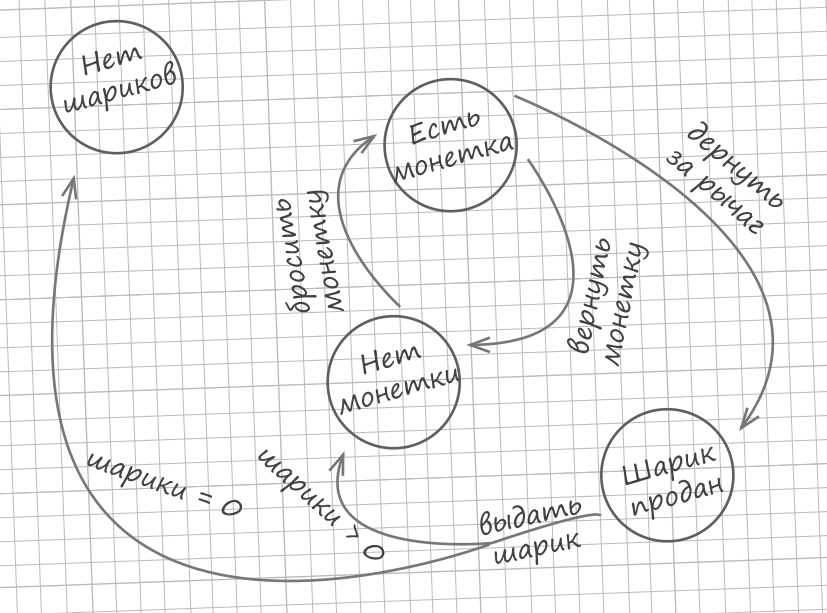 Нет
шариков
Есть
монетка
дернуть
за рычаг
бросить
монетку
вернуть
монетку
Нет
монетки
шарики = 0
шарики > 0
Шарик
продан
выдать
шарик